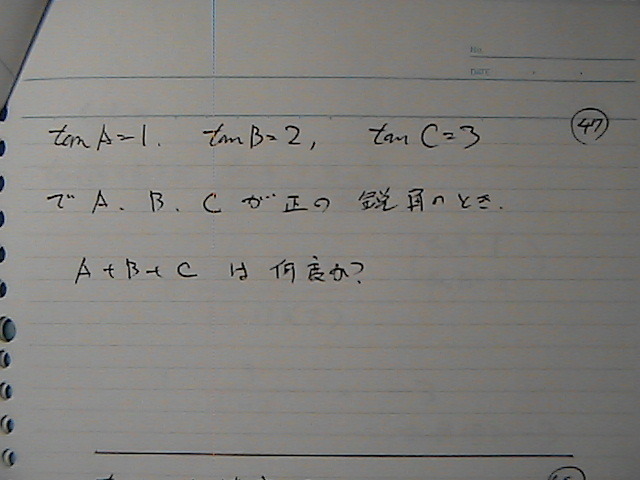 No.
DATE
tan A=1. tan B=2, tan C=3 ㊼
で A、B、C が 正の 鋭角のとき.
A+B+C は 何度か?